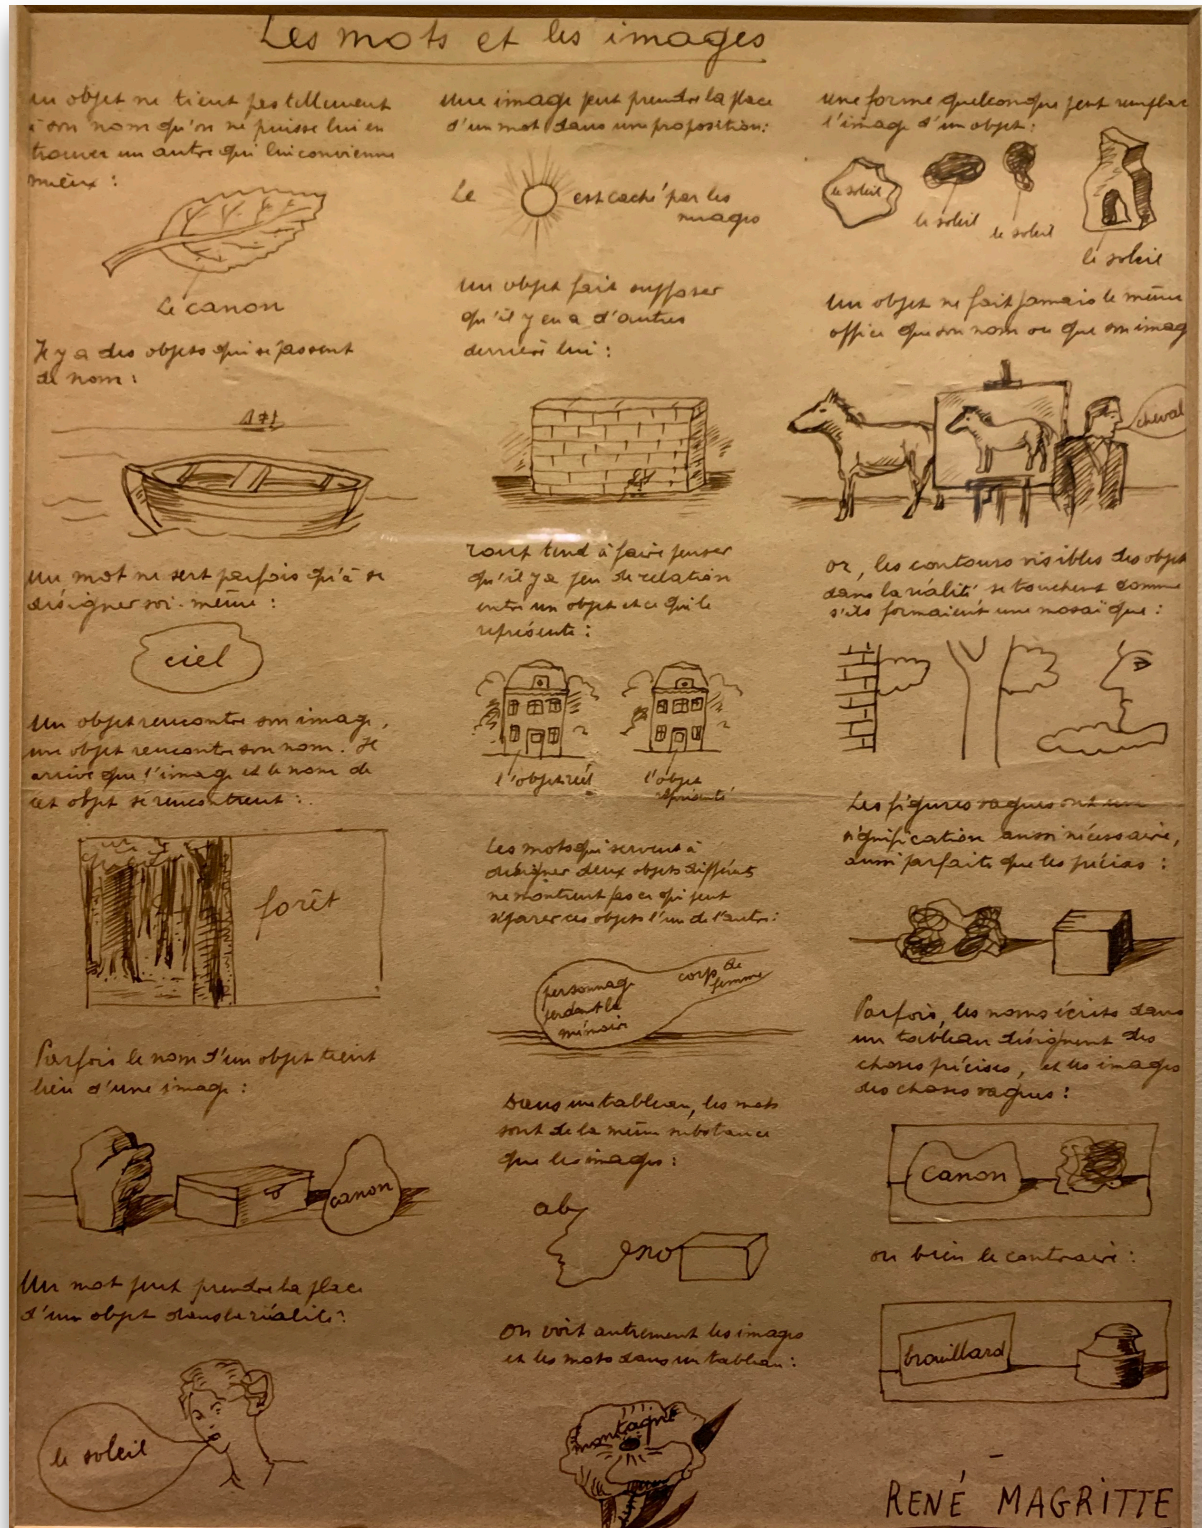 Les mots et les images
un objet ne tient pas tellement
à son nom qu'on ne puisse lui en
trouver un autre qui lui convienne
mieux :
Le canon
Il y a des objets qui se passent
de nom :
un mot ne sert parfois qu'à se
désigner soi-même :
ciel
Un objet rencontre son image,
un objet rencontre son nom. Il
arrive que l'image et le nom de
cet objet se rencontrent :
forêt
Parfois le nom d'un objet tient
lieu d'une image :
canon
Un mot peut prendre la place
d'un objet dans la réalité :
le soleil
une image peut prendre la place
d'un mot dans une proposition :
Le
est caché par les
nuages
un objet fait supposer
qu'il y en a d'autres
derrière lui :
Tout tend à faire penser
qu'il y a peu de relation
entre un objet et ce qui le
représente :
l'objet réel
l'objet
représenté
Les mots qui servent à
désigner deux objets différents
ne montrent pas ce qui peut
séparer ces objets l'un de l'autre :
personnage
perdant la
mémoire
corps de
femme
Dans un tableau, les mots
sont de la même substance
que les images :
ab
eno
On voit autrement les images
et les mots dans un tableau :
montagne
une forme quelconque peut remplac
l'image d'un objet :
le soleil
le soleil
le soleil
le soleil
un objet ne fait jamais le même
office que son nom ou que son imag
cheval
or, les contours visibles des objets
dans la réalité se touchent comme
s'ils formaient une mosaïque :
Les figures vagues ont une
signification aussi nécessaire,
aussi parfaite que les précises :
Parfois, les noms écrits dans
un tableau désignent des
choses précises, et les images
des choses vagues :
canon
ou bien le contraire :
brouillard
RENÉ MAGRITTE